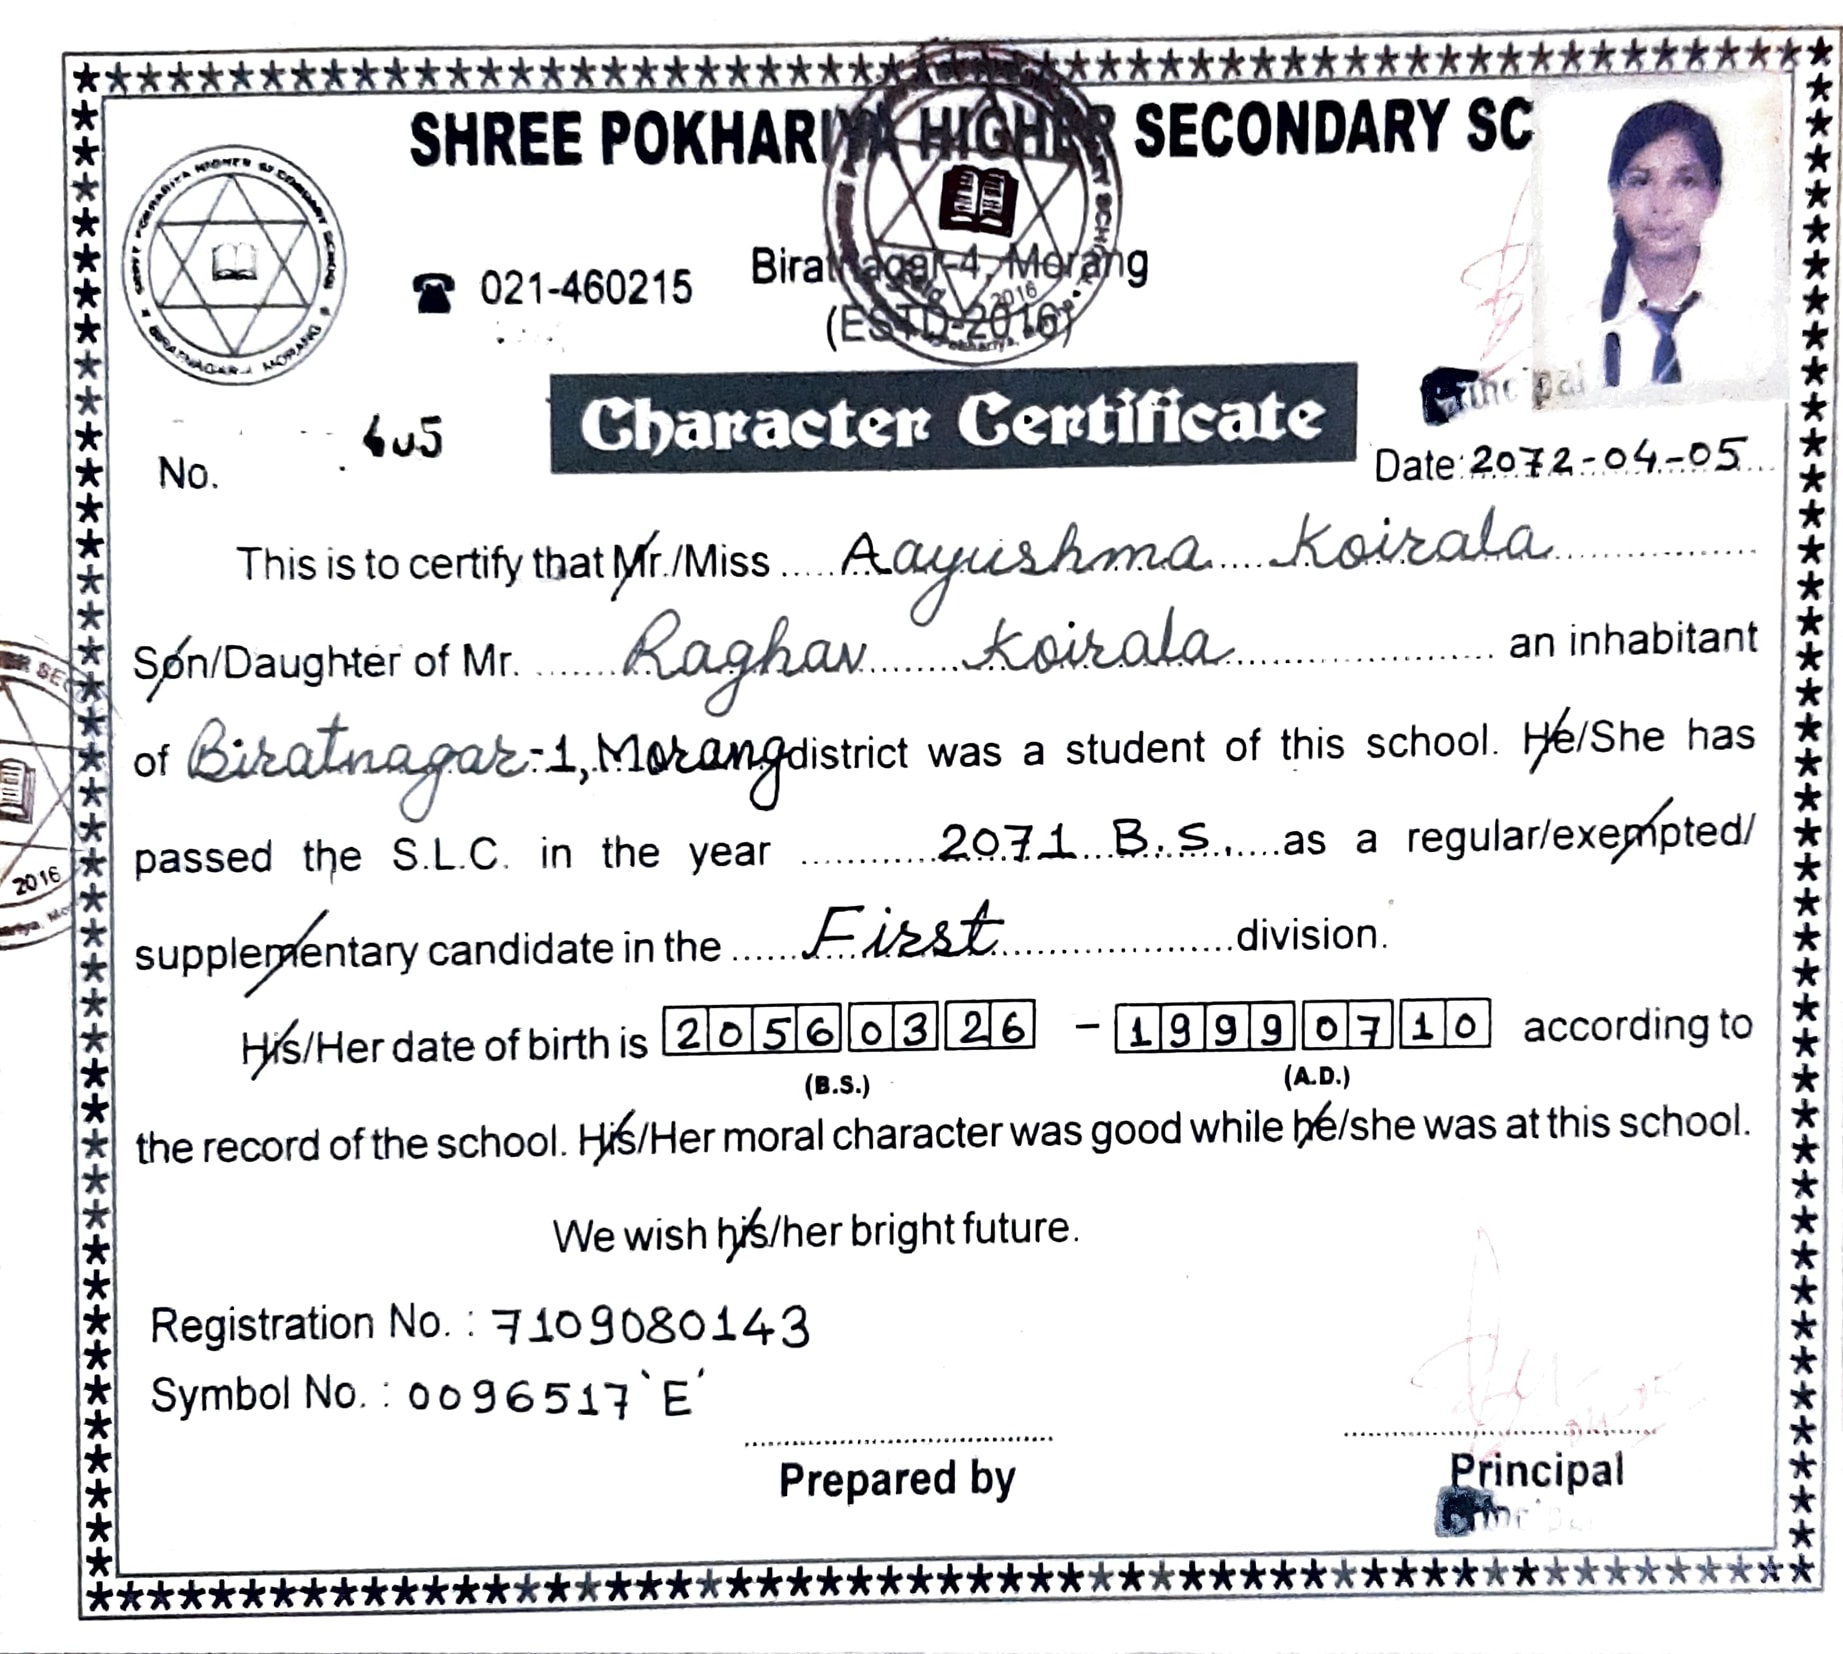 SHREE POKHARIYA HIGHER SECONDARY SC
SHREE POKHARIYA HIGHER SECONDARY SCHOOL
BIRATNAGAR-4 MORANG
021-460215
Biratnagar-4, Morang
2016
(ESTD-2016)
Principal
Character Certificate
No. 405
Date: 2072-04-05
This is to certify that Mr./Miss Aayushma Koirala
Son/Daughter of Mr. Raghav Koirala an inhabitant
of Biratnagar-1, Morang district was a student of this school. He/She has
passed the S.L.C. in the year 2071 B.S. as a regular/exempted/
2016
supplementary candidate in the First division.
His/Her date of birth is 20560326 - 19990710 according to
(B.S.) (A.D.)
the record of the school. His/Her moral character was good while he/she was at this school.
We wish his/her bright future.
Registration No. : 7109080143
Symbol No. : 0096517 'E'
Prepared by
Principal
Principal